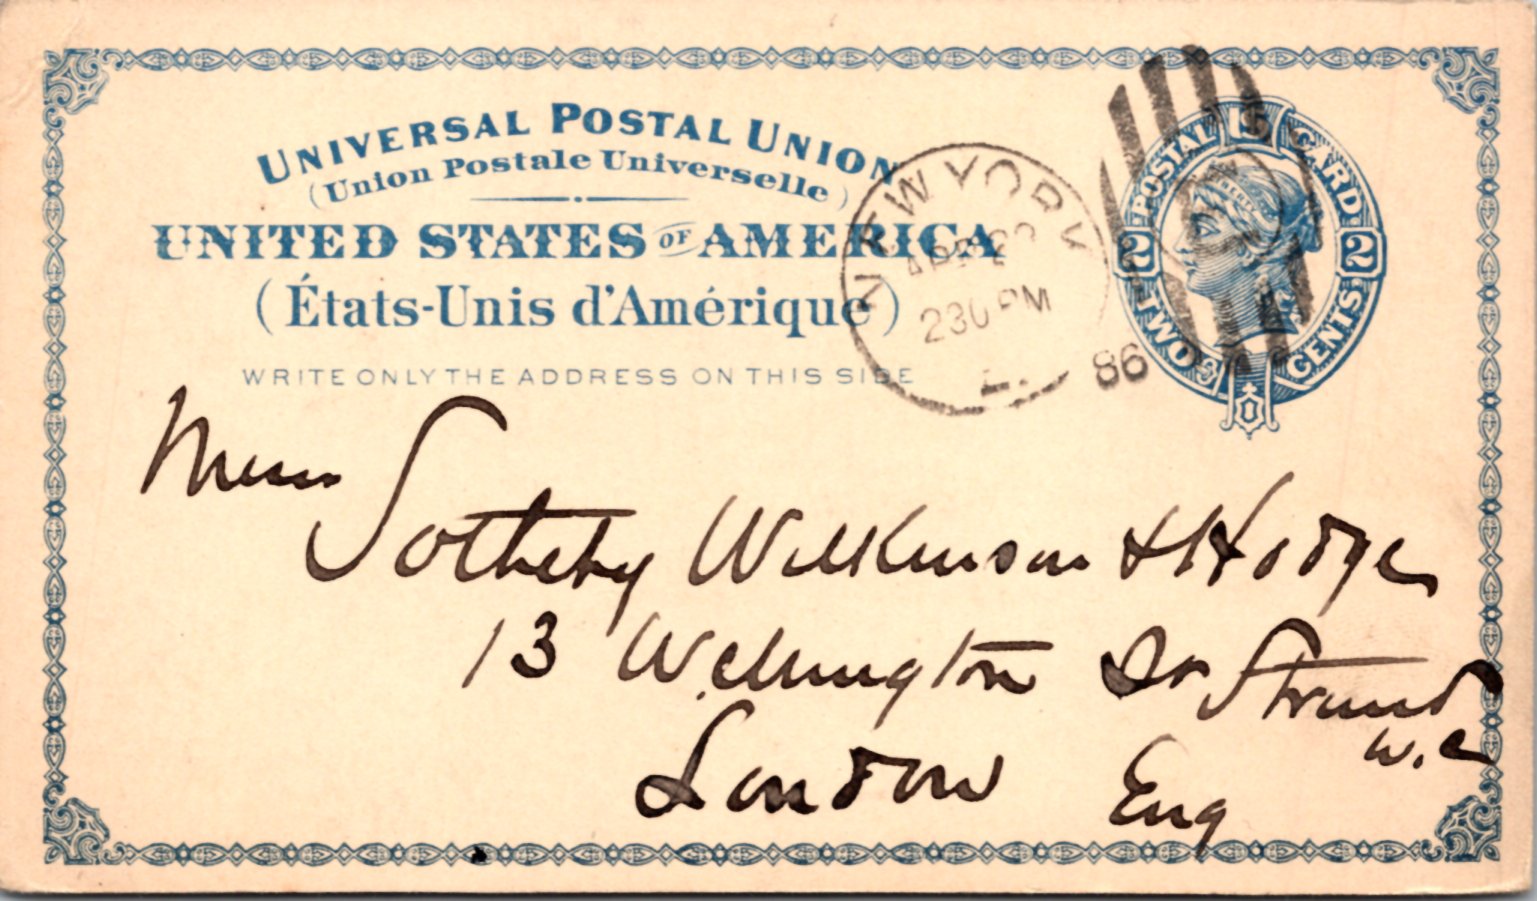 UNIVERSAL POSTAL UNION
(Union Postale Universelle)
UNITED STATES OF AMERICA
(États-Unis d'Amérique)
WRITE ONLY THE ADDRESS ON THIS SIDE
NEW YORK
APR
230 PM
86
POSTAL CARD
2 2
TWO CENTS
Messrs
Sotheby Wilkinson & Hodge
13 Wellington St Strand
W.C
London Eng